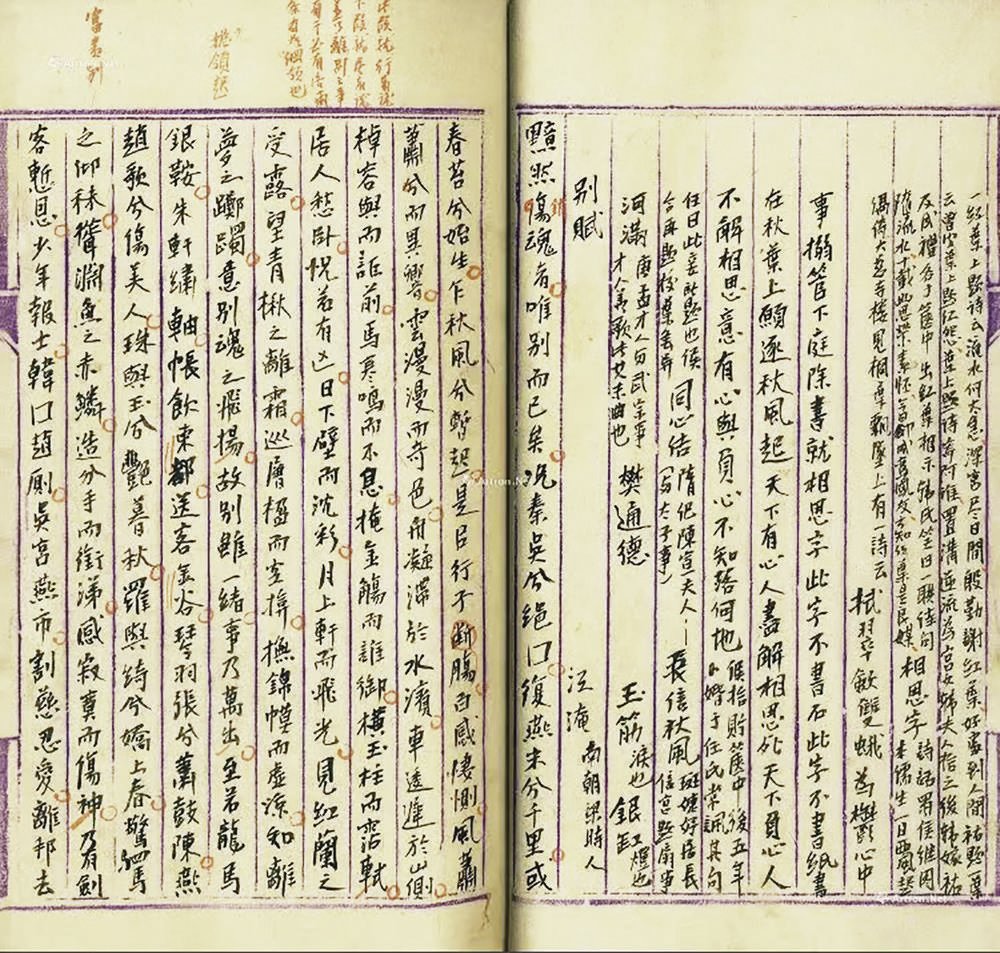 一紅葉上題詩云流水何太急深宮尽日閒殷勤謝紅葉好去到人間祐題一葉
云曾聞葉上題紅怨葉上題詩寄阿誰置溝逆流為宮女韓夫人拾之後韓嫁祐
及成禮各于篋中出紅葉相示韓氏笑曰一聯佳句
隨流水十載幽思滿素懷 鳳友方知紅葉是良媒 相思字 詩話 侯继圖本儒生一日西風起
偶倚大慈寺樓見桐葉飄墜上有一詩云 拭翠斂雙蛾為鬱心中
事搦管下庭除書就相思字此字不書石此字不書紙書
在秋葉上願逐秋風起天下有心人盡解相思死天下負心人
不解相思意有心與負心不知落何地 侯拾貯篋中後五年卜婚于任氏常諷其句
任曰此妾所題也侯 同心结 隋纪陳宣夫人 (与太子事) 長信秋風 班婕妤居長信宮題扇事
河滿 唐孟才人 武宗事才人善歌 樊通德 玉筋 淚也 銀缸 燈也
别賦 江淹 南朝梁時人
黯然傷魂者唯别而已矣况秦吳兮绝口復燕宋兮千里或
銷
春苔兮始生乍秋風兮暫起是以行子断腸百感悽惻風蕭
蕭兮而異響雲漫漫而奇色舟凝滞於水濱車逶遲於山側
棹容與而詎前馬寒鳴而不息掩金觴而誰御横玉柱而霑軾
居人愁卧怳若有亡日下壁而沈彩月上軒而飛光見紅蘭之
受露望青楸之離霜巡層楹而空揜撫錦幙而虚涼知離
夢之躑躅意别魂之飛揚故别雖一緒事乃萬出至若龍馬
銀鞍朱軒繡軸帳飲東都送客金谷琴羽張兮蕭鼓陳燕
趙歌兮傷美人珠與玉兮艷暮秋羅與綺兮嬌上春驚駟馬
之仰秣聳淵魚之赤鱗造分手而銜涕感寂寞而傷神乃有劍
客慙恩少年報士韓口趙厠吳宮燕市割慈忍愛離邦去
富貴别